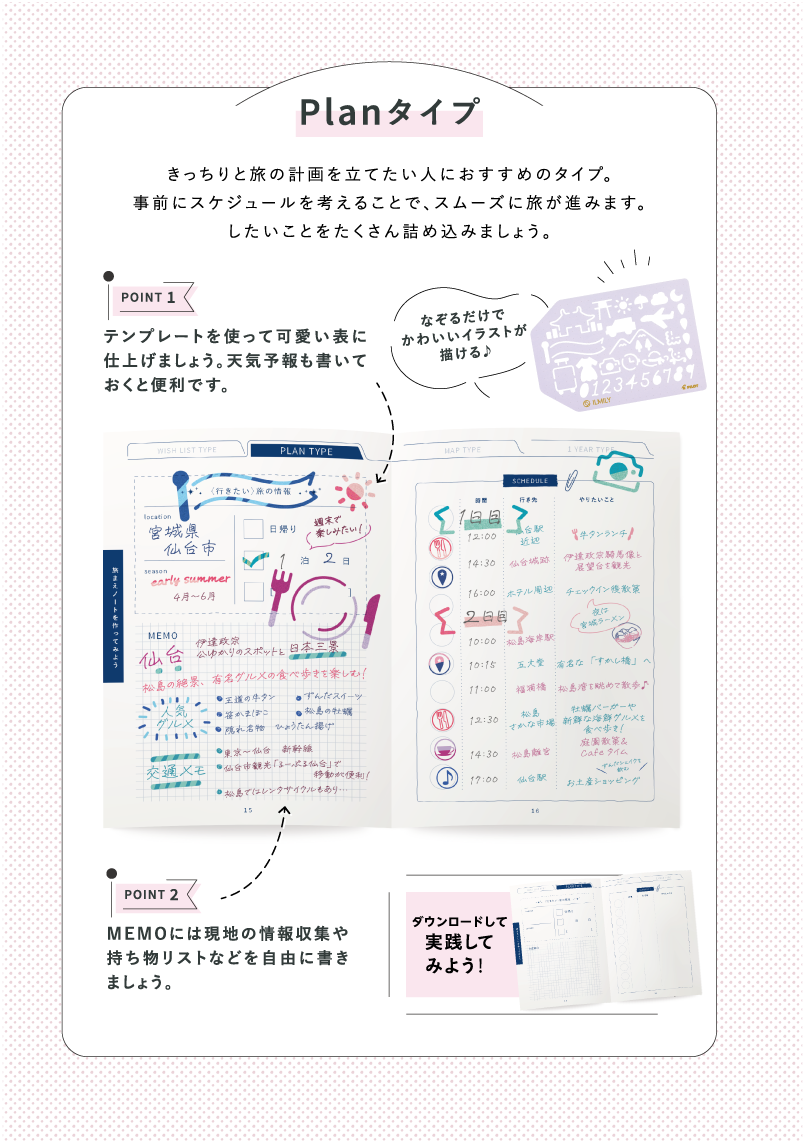 Planタイプ
きっちりと旅の計画を立てたい人におすすめのタイプ。
事前にスケジュールを考えることで、スムーズに旅が進みます。
したいことをたくさん詰め込みましょう。
POINT 1
テンプレートを使って可愛い表に
仕上げましょう。天気予報も書いて
おくと便利です。
なぞるだけで
かわいいイラストが
描ける♪
1234567890
WISH LIST TYPE
PLAN TYPE
MAP TYPE
1 YEAR TYPE
〈行きたい〉旅の情報
location
宮城県
仙台市
season
early summer
4月〜6月
日帰り
週末で
楽しみたい!
1 泊 2 日
旅まえノートを作ってみよう
MEMO
仙台
伊達政宗
公ゆかりのスポットと日本三景
松島の絶景、有名グルメの食べ歩きを楽しむ!
人気
グルメ
王道の牛タン
ずんだスイーツ
笹かまぼこ
松島の牡蠣
隠れ名物 ひょうたん揚げ
交通メモ
東京〜仙台 新幹線
仙台市観光「るーぷる仙台」で
移動が便利!
松島ではレンタサイクルもあり…
15
SCHEDULE
時間
行き先
やりたいこと
1日目
12:00
仙台駅
近辺
牛タンランチ
14:30
仙台城跡
伊達政宗騎馬像と
展望台を観光
16:00
ホテル周辺
チェックイン後散策
夜は
宮城ラーメン
2日目
10:00
松島海岸駅
10:15
五大堂
有名な「すかし橋」へ
11:00
福浦橋
松島湾を眺めて散歩♪
12:30
松島
さかな市場
牡蠣バーガーや
新鮮な海鮮グルメを
食べ歩き!
14:30
松島離宮
庭園散策&
Cafeタイム
ずんだシェイクを
飲む
17:00
仙台駅
お土産ショッピング
16
POINT 2
MEMOには現地の情報収集や
持ち物リストなどを自由に書き
ましょう。
ダウンロードして
実践して
みよう!